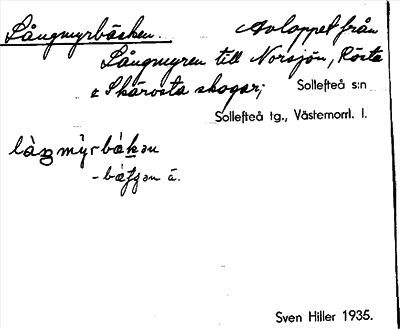 Långmyrbäcken. Avloppet från
Långmyren till Norsjön, Rösta
& Skärvsta skogar; Sollefteå s:n
Sollefteå tg., Västernorrl. l.
-bäcken ä.
Sven Hiller 1935.